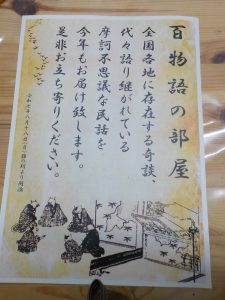 百物語の部屋
全国各地に存在する奇談、
代々語り継がれている
摩訶不思議な民話を
今年もお届け致します。
是非お立ち寄りください。